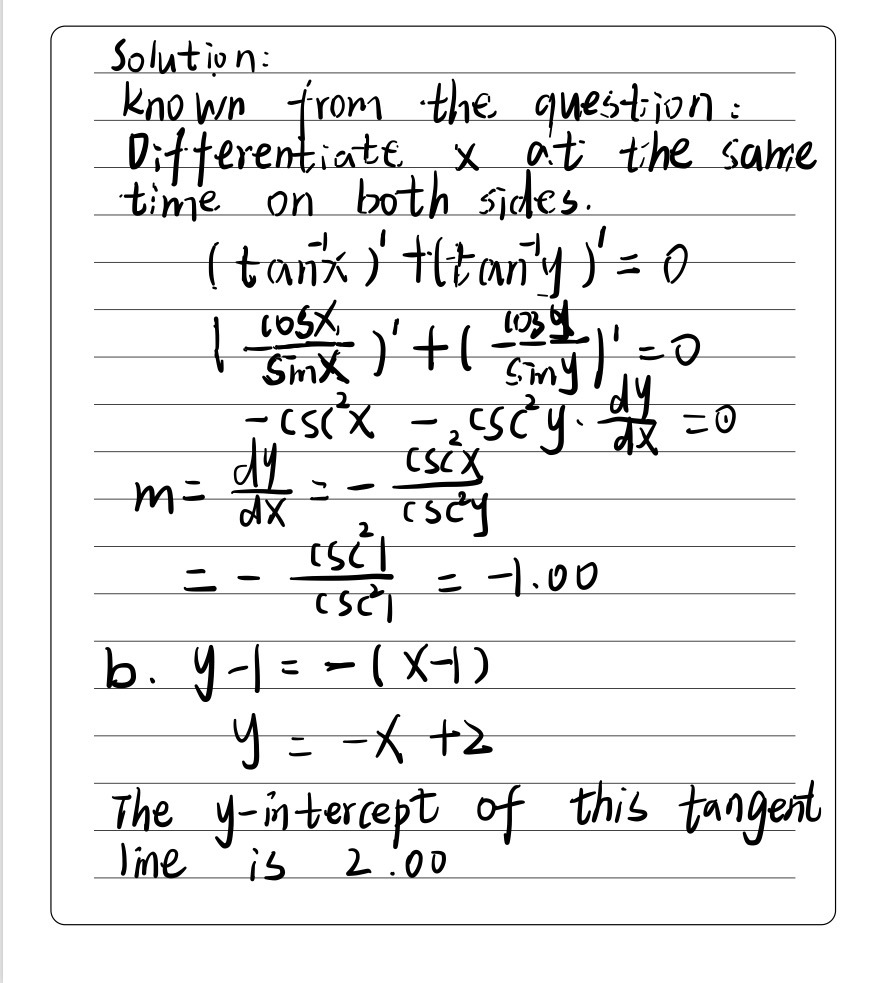 Solution:
Known from the question:
Differentiate x at the same
time on both sides.
(tan⁻¹x)' + (tan⁻¹y)' = 0
(cosx/sinx)' + (cosy/siny)' = 0
-csc²x - csc²y · dy/dx = 0
m = dy/dx = - csc²x/csc²y
= - csc²1/csc²1 = -1.00
b. y-1 = -(x-1)
y = -x +2
The y-intercept of this tangent
line is 2.00